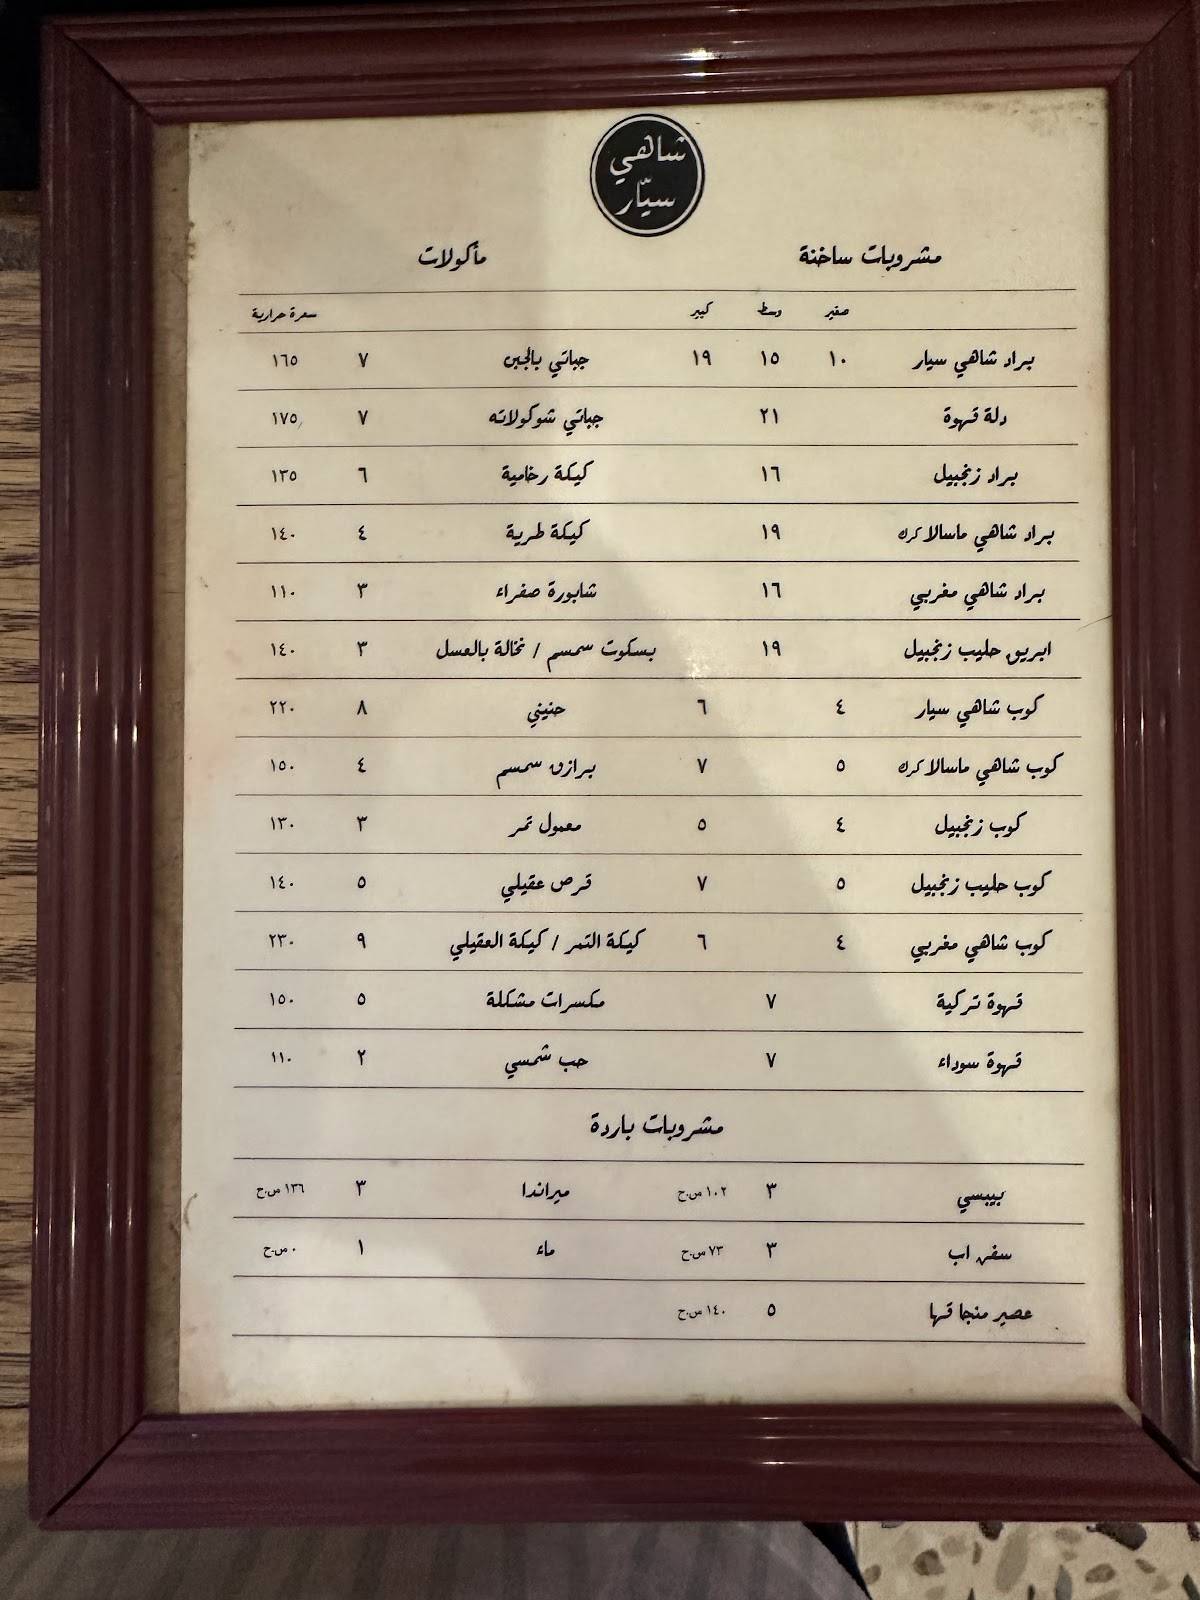 شاهي
سيّار
مشروبات ساخنة مأكولات
صغير وسط كبير سعرة حرارية
براد شاهي سيار ١٠ ١٥ ١٩ جباتي بالجبن ٧ ١٦٥
دلة قهوة ٢١ جباتي شوكولاته ٧ ١٧٥
براد زنجبيل ١٦ كيكة رخامية ٦ ١٣٥
براد شاهي ماسالا كرك ١٩ كيكة طرية ٤ ١٤٠
براد شاهي مغربي ١٦ شابورة صفراء ٣ ١١٠
ابريق حليب زنجبيل ١٩ بسكوت سمسم / نخالة بالعسل ٣ ١٤٠
كوب شاهي سيار ٤ ٦ حنيني ٨ ٢٢٠
كوب شاهي ماسالا كرك ٥ ٧ برازق سمسم ٤ ١٥٠
كوب زنجبيل ٤ ٥ معمول تمر ٣ ١٣٠
كوب حليب زنجبيل ٥ ٧ قرص عقيلي ٥ ١٤٠
كوب شاهي مغربي ٤ ٦ كيكة التمر / كيكة العقيلي ٩ ٢٣٠
قهوة تركية ٧ مكسرات مشكلة ٥ ١٥٠
قهوة سوداء ٧ حب شمسي ٢ ١١٠
مشروبات باردة
بيبسي ٣ ١٠٢ س.ح ميراندا ٣ ١٣٦ س.ح
سفن اب ٣ ٧٣ س.ح ماء ١ ٠ س.ح
عصير منجا قها ٥ ١٤٠ س.ح